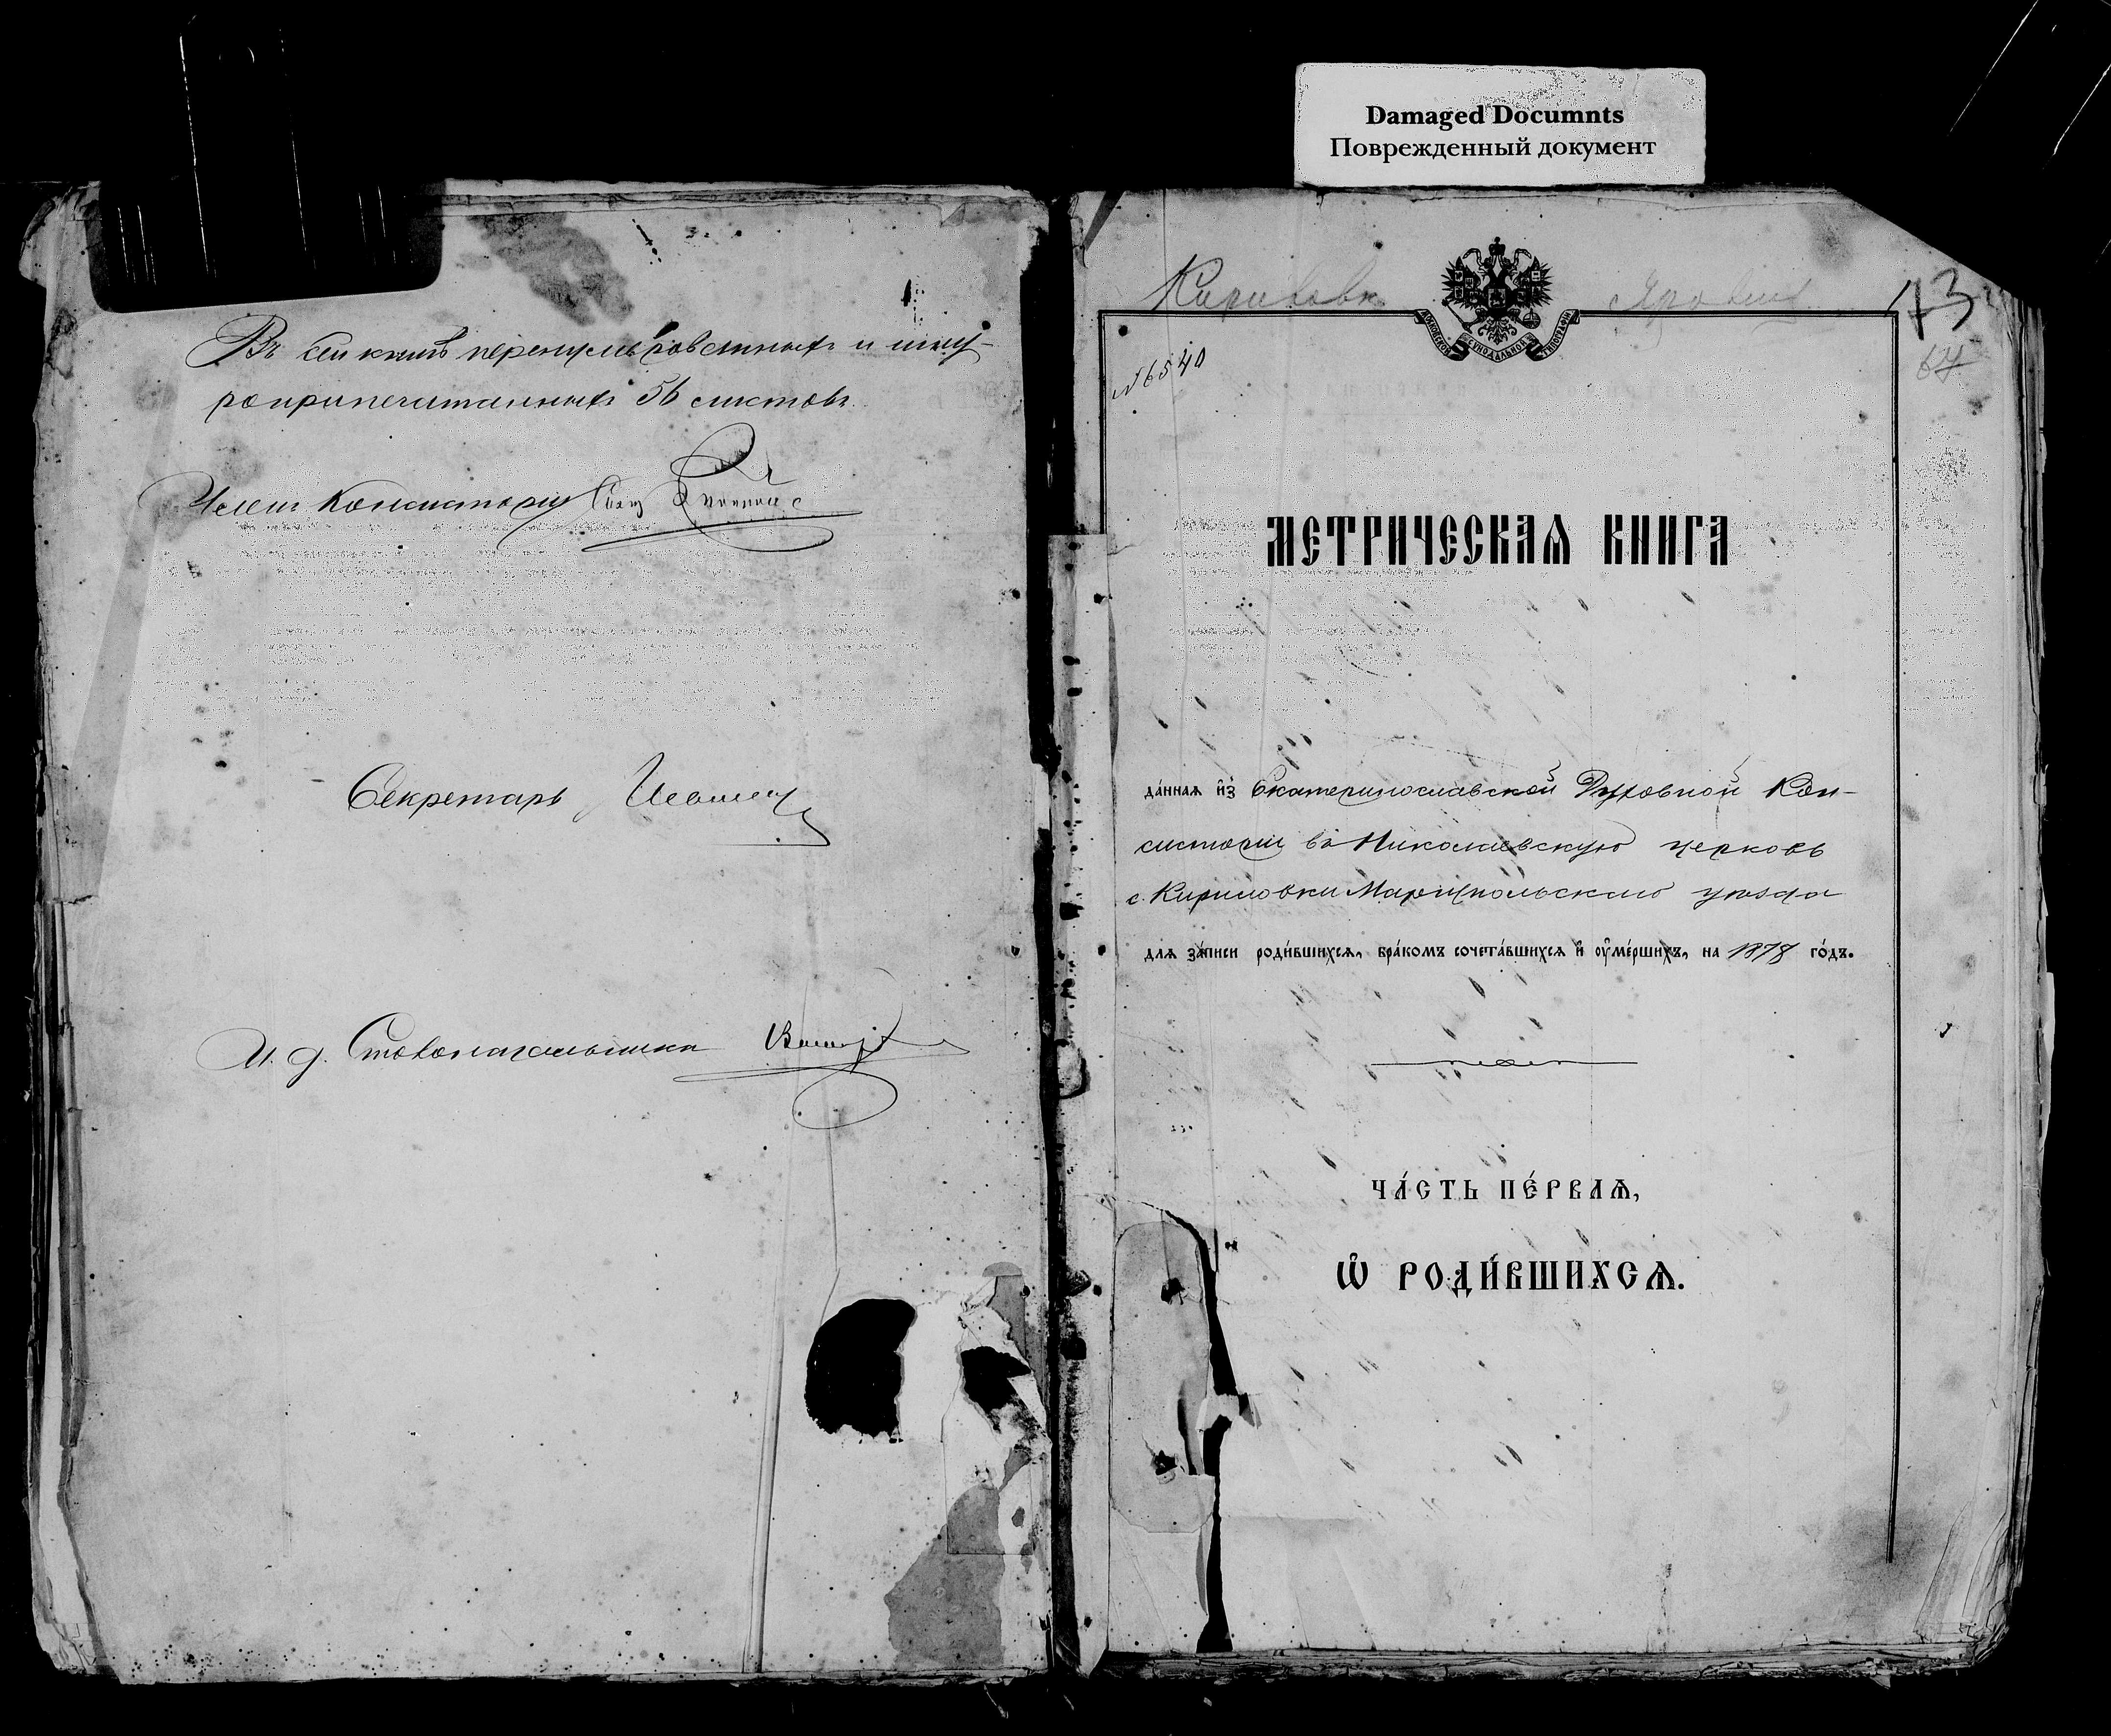 Damaged Documnts
Поврежденный документ
Въ сей книгѣ перенумерованныхъ и шну-
роприпечатанныхъ 56 листовъ.
Членъ Консисторіи
Секретарь
И. д. Столоначальника
73
64
№6540
МОСКОВСКОЙ СѴНОДАЛЬНОЙ ТИПОГРАФІИ
МЕТРИЧЕСКАѦ КНИГА
да́ннаѧ и҆з̾ Екатеринославской Духовной Кон-
систоріи въ Николаевскую церковь
с. Кириловки Маріупольскаго уѣзда
длѧ за́писи роди́вшихсѧ, бра́комъ сочета́вшихсѧ и҆ ᲂу҆ме́ршихъ, на 1878 го́дъ.
ЧА́СТЬ ПЕ́РВАѦ,
Ѡ҆ РОДИ́ВШИХСѦ.